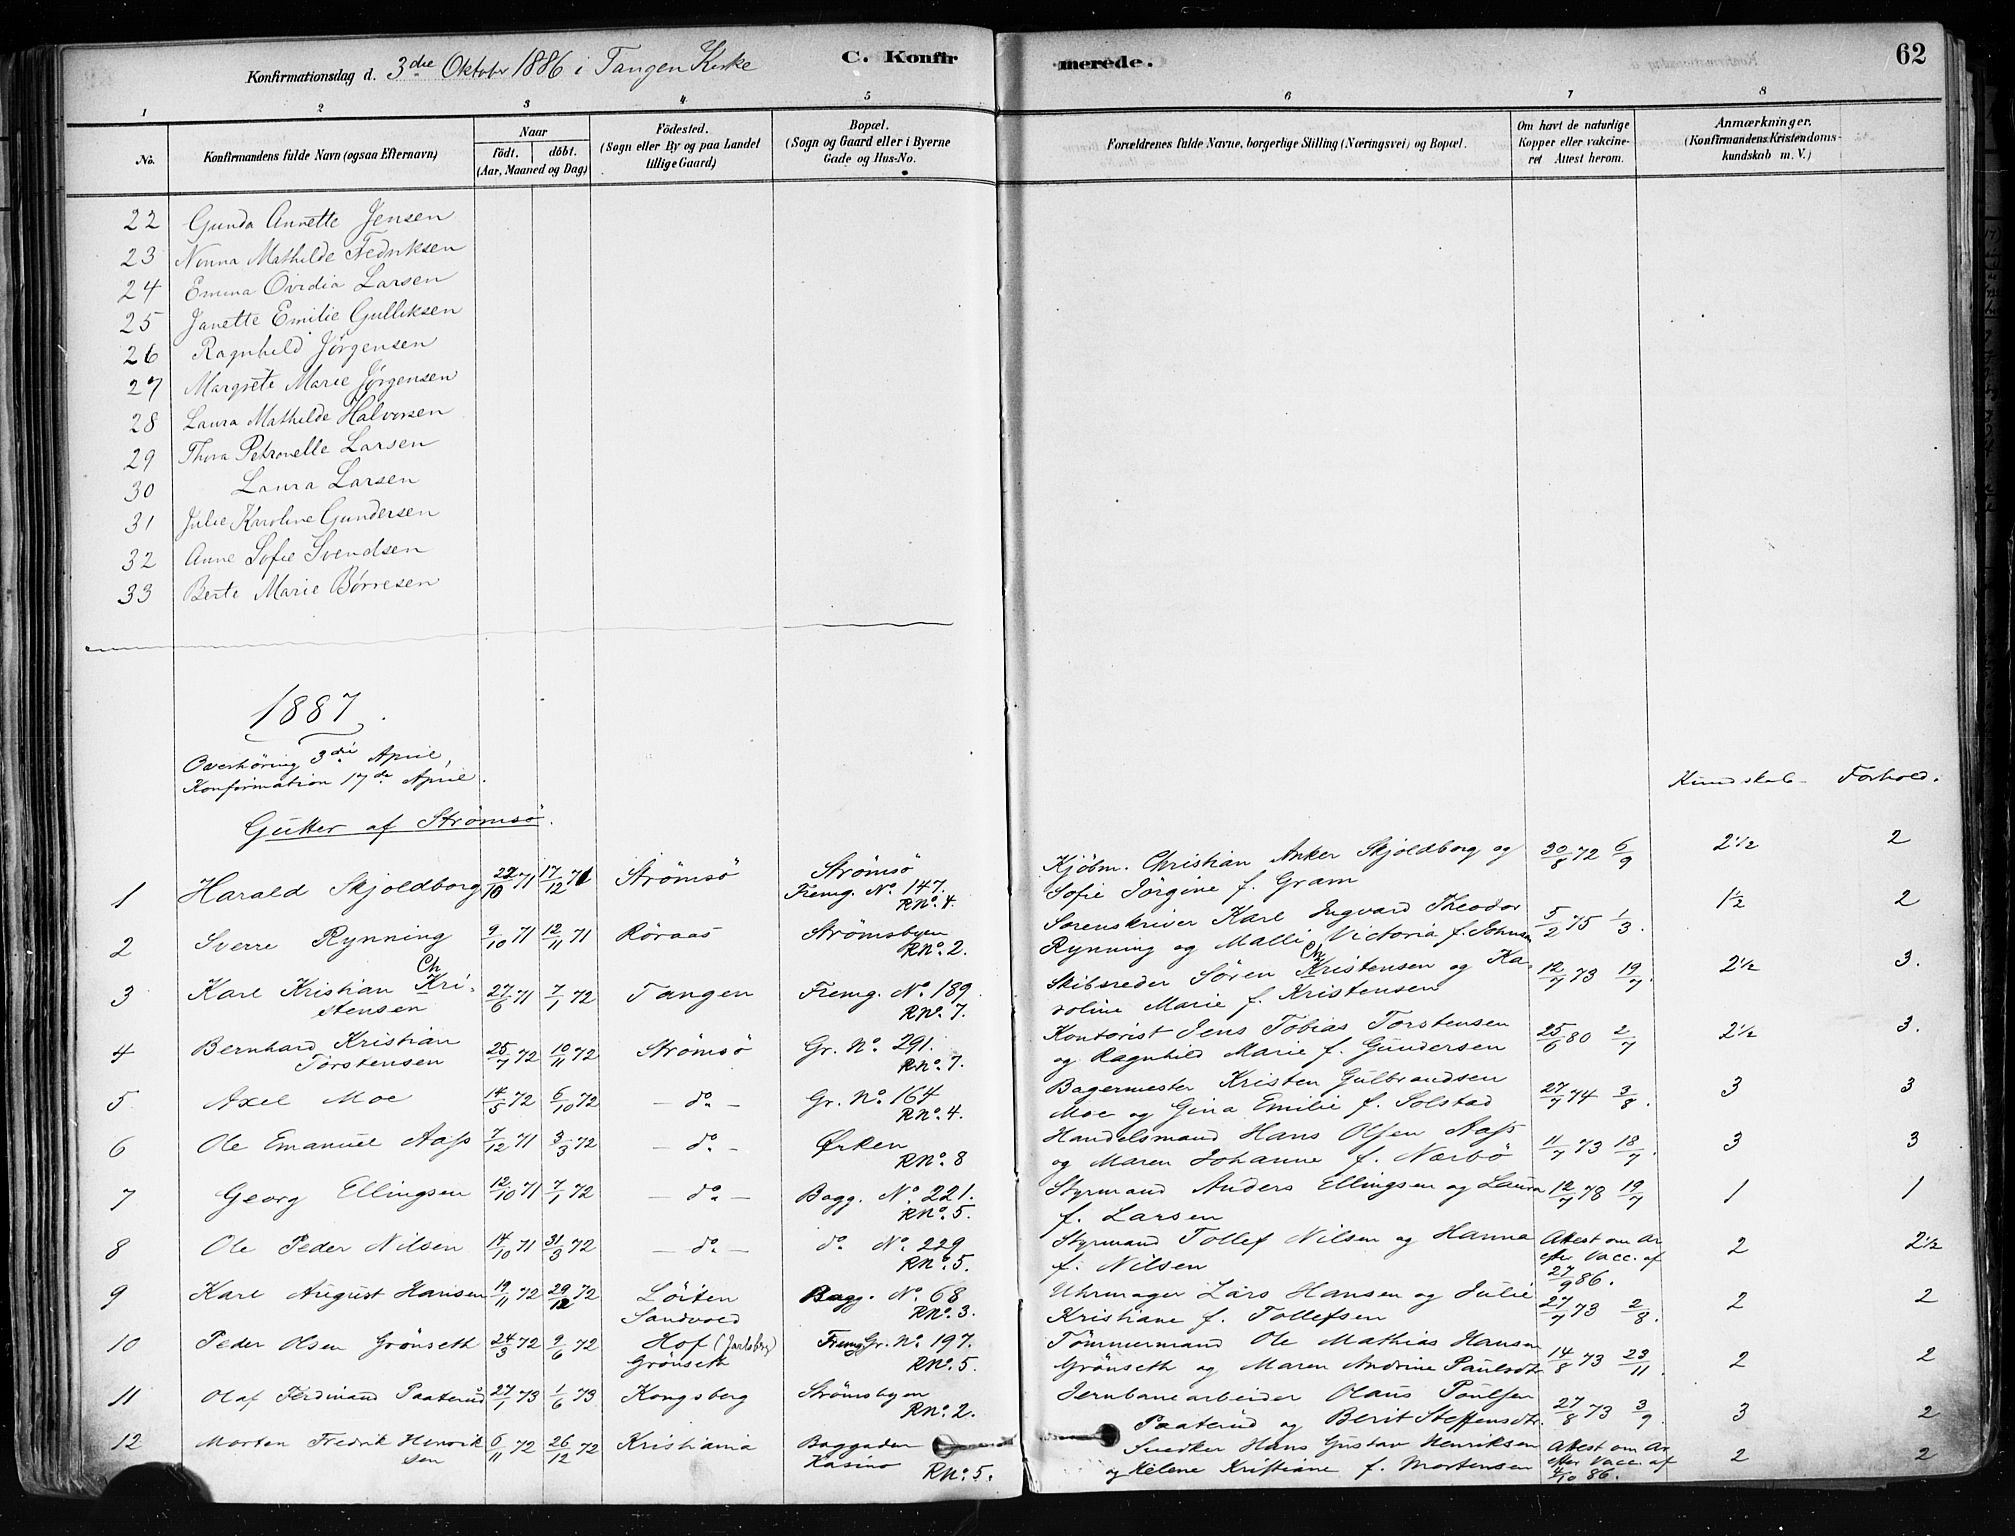 Konfirmationsdag d. 3die Oktober 1886 i Tangen Kirke
C. Konfir merede.
62
1 2 3 4 5 6 7 8
No.
Konfirmandens fulde Navn (ogsaa Efternavn)
Naar
Födt. döbt.
(Aar, Maaned og Dag)
Födested.
(Sogn eller By og paa Landet
tillige Gaard)
Bopæl.
(Sogn og Gaard eller i Byerne
Gade og Hus-No.
Forældrenes fulde Navne, borgerlige Stilling (Næringsvei) og Bopæl.
Om havt de naturlige
Kopper eller vakcine-
ret Attest herom.
Anmærkninger.
(Konfirmandens Kristendoms-
kundskab m. V.)
22 Gunda Annette Jensen
23 Nonna Mathilde Fedriksen
24 Emma Ovidia Larsen
25 Janette Emilie Gulliksen
26 Ragnhild Jørgensen
27 Margrete Marie Jørgensen
28 Laura Mathilde Halvorsen
29 Thora Petronelle Larsen
30 Laura Larsen
31 Julie Karoline Gundersen
32 Anne Sofie Svendsen
33 Berte Marie Børresen
1887.
Overhöring 3die April,
Konfirmation 17de April.
Kundskab Forhold.
Gutter af Strömsö.
1 Harald Skjoldborg 22/10 71 17/12 71 Strömsö Strömsö Fremg. No. 147. RNo. 4. Kjöbm. Christian Anker Skjoldborg og 30/8 72 6/9 2 1/2 2
Sofie Jörgine f. Gram
2 Sverre Rynning 9/10 71 12/11 71 Röraas Strömsbyen RNo. 2. Sorenskriver Karl Ingvard Theodor 5/2 75 1/3. 1 1/2 2
Rynning og Malli Victoria f. Johnsen
3 Karl Kristian Ch Kri- 27/6 71 7/1 72 Tangen Fremg. No. 189. RNo. 7. Skibsreder Sören Ch Kristensen og Ka- 12/7 73 19/7. 2 1/2 3.
stensen roline Marie f. Kristensen
4 Bernhard Kristian 25/7 72 10/11 72 Strömsö Gr. No. 291. RNo. 7. Kontorist Jens Tobias Torstensen 25/6 80 2/7 2 1/2 3.
Torstensen og Ragnhild Marie f. Gundersen
5 Axel Moe 14/5 72 6/10 72 — do. — Gr. No. 164 RNo. 4. Bagermester Kristen Gulbrandsen 27/7 74 3/8. 3 3
Moe og Gina Emilie f. Solstad
6 Ole Emanuel Aass 7/12 71 3/3 72 — do. — Ørken RNo. 8 Handelsmand Hans Olsen Aass 11/7 73 18/7. 3 3
og Maren Johanne f. Nærbö
7 Georg Ellingsen 12/10 71 7/1 72 — do. — Bagg. No. 221. RNo. 5. Styrmand Anders Ellingsen og Laura 12/7 78 19/7 1 1
f. Larsen
8 Ole Peder Nilsen 14/10 71 31/3 72 — do. — do. No. 229 RNo. 5. Styrmand Tollef Nilsen og Hanna Attest om Ar efter Vacc. af 27/9 86. 2 2 1/2
f. Nilsen
9 Karl August Hansen 19/11 72 29/12 72 Löiten Sandvold Bagg. No. 68 RNo. 3. Uhrmager Lars Hansen og Julie 27/7 73 2/8. 2 2
Kristiane f. Tollefsen
10 Peder Olsen Grönseth 24/3 72 9/6 72 Hof (Jarlsberg) Grönseth Fremg Gr. No. 197. RNo. 5. Tömmermand Ole Mathias Hansen 14/8 73 23/11. 2 2
Grönseth og Maren Andrine Paulsdt.
11 Olaf Ferdinand Paaterud 27/1 73 1/6 73 Kongsberg Strömsbyen RNo. 2. Jernbanearbeider Olaus Poulsen 27/8 73 3/9. 3 2
Paaterud og Berit Steffensdtr.
12 Morten Fredrik Henrik 6/11 72 26/12 72 Kristiania Baggaden Kasino RNo. 5. Snedker Hans Gustav Henriksen Attest om Ar efter Vacc. af 4/10 86. 2 2
sen og Helene Kristiane f. Mortensen